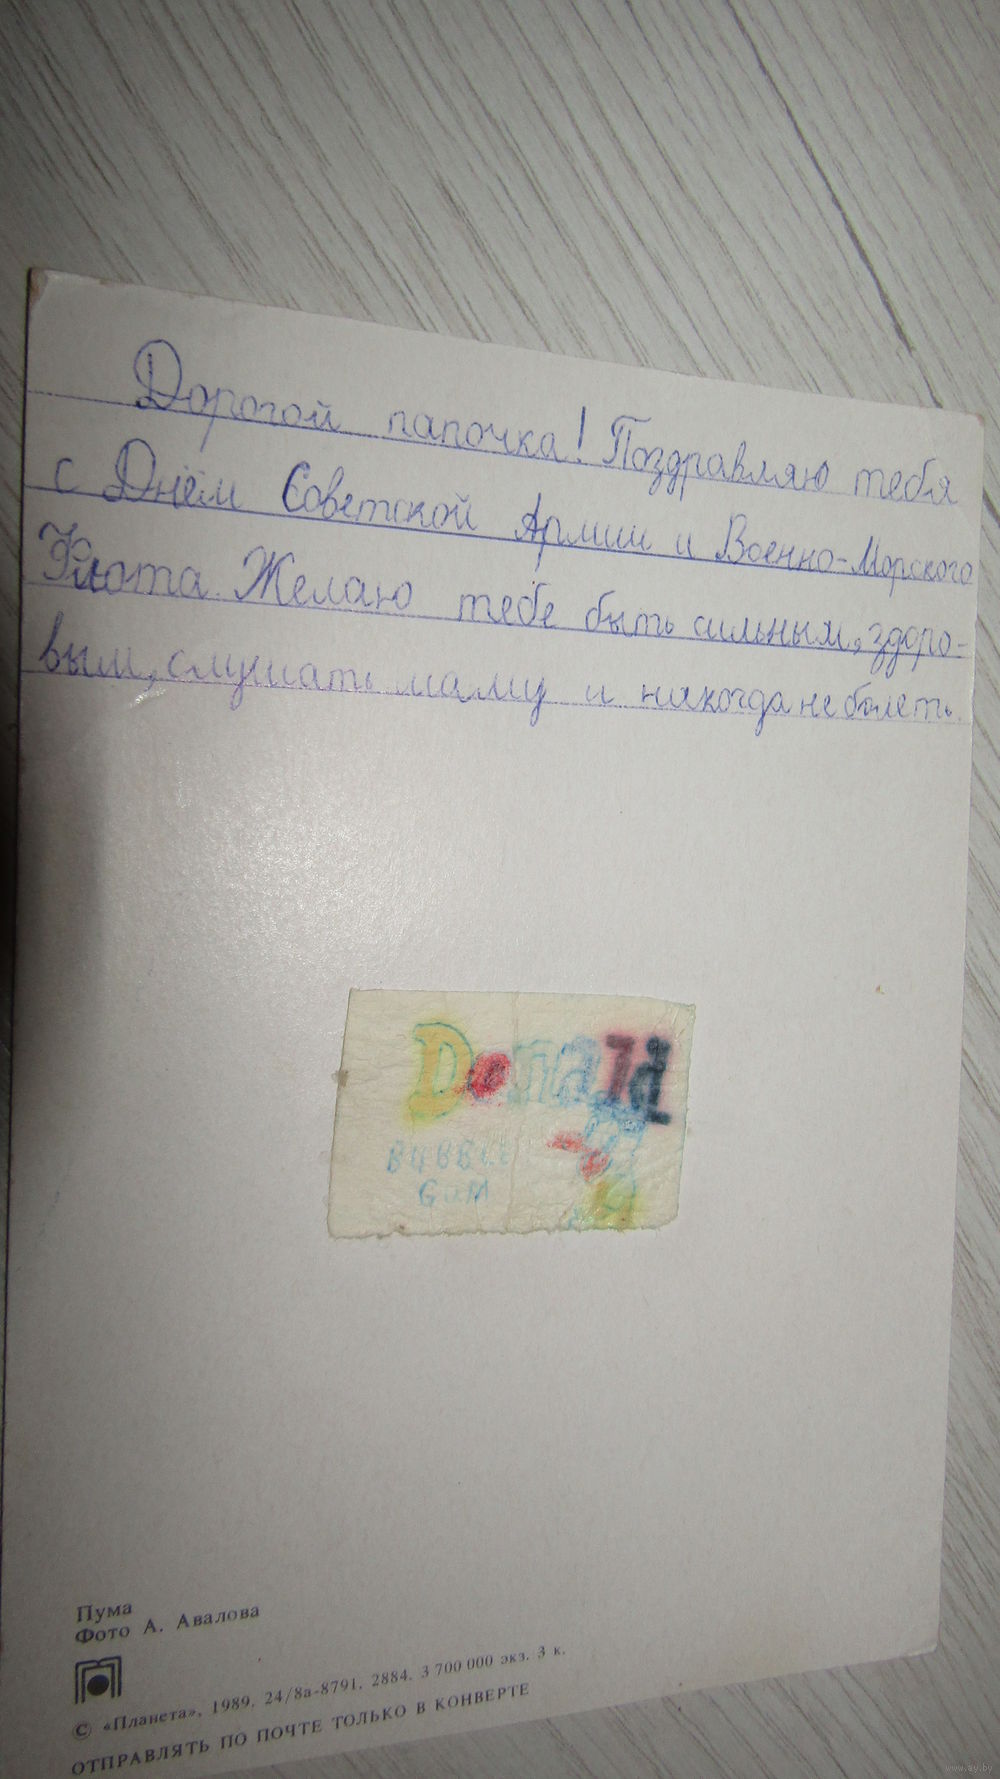 Дорогой папочка! Поздравляю тебя
с Днём Советской Армии и Военно-Морского
Флота. Желаю тебе быть сильным, здоро-
вым, слушать маму и никогда не болеть.
Donald
BUBBLE
GUM
Пума
Фото А. Авалова
© «Планета», 1989. 24/8а-8791. 2884. 3 700 000 экз. 3 к.
ОТПРАВЛЯТЬ ПО ПОЧТЕ ТОЛЬКО В КОНВЕРТЕ
www.ay.by